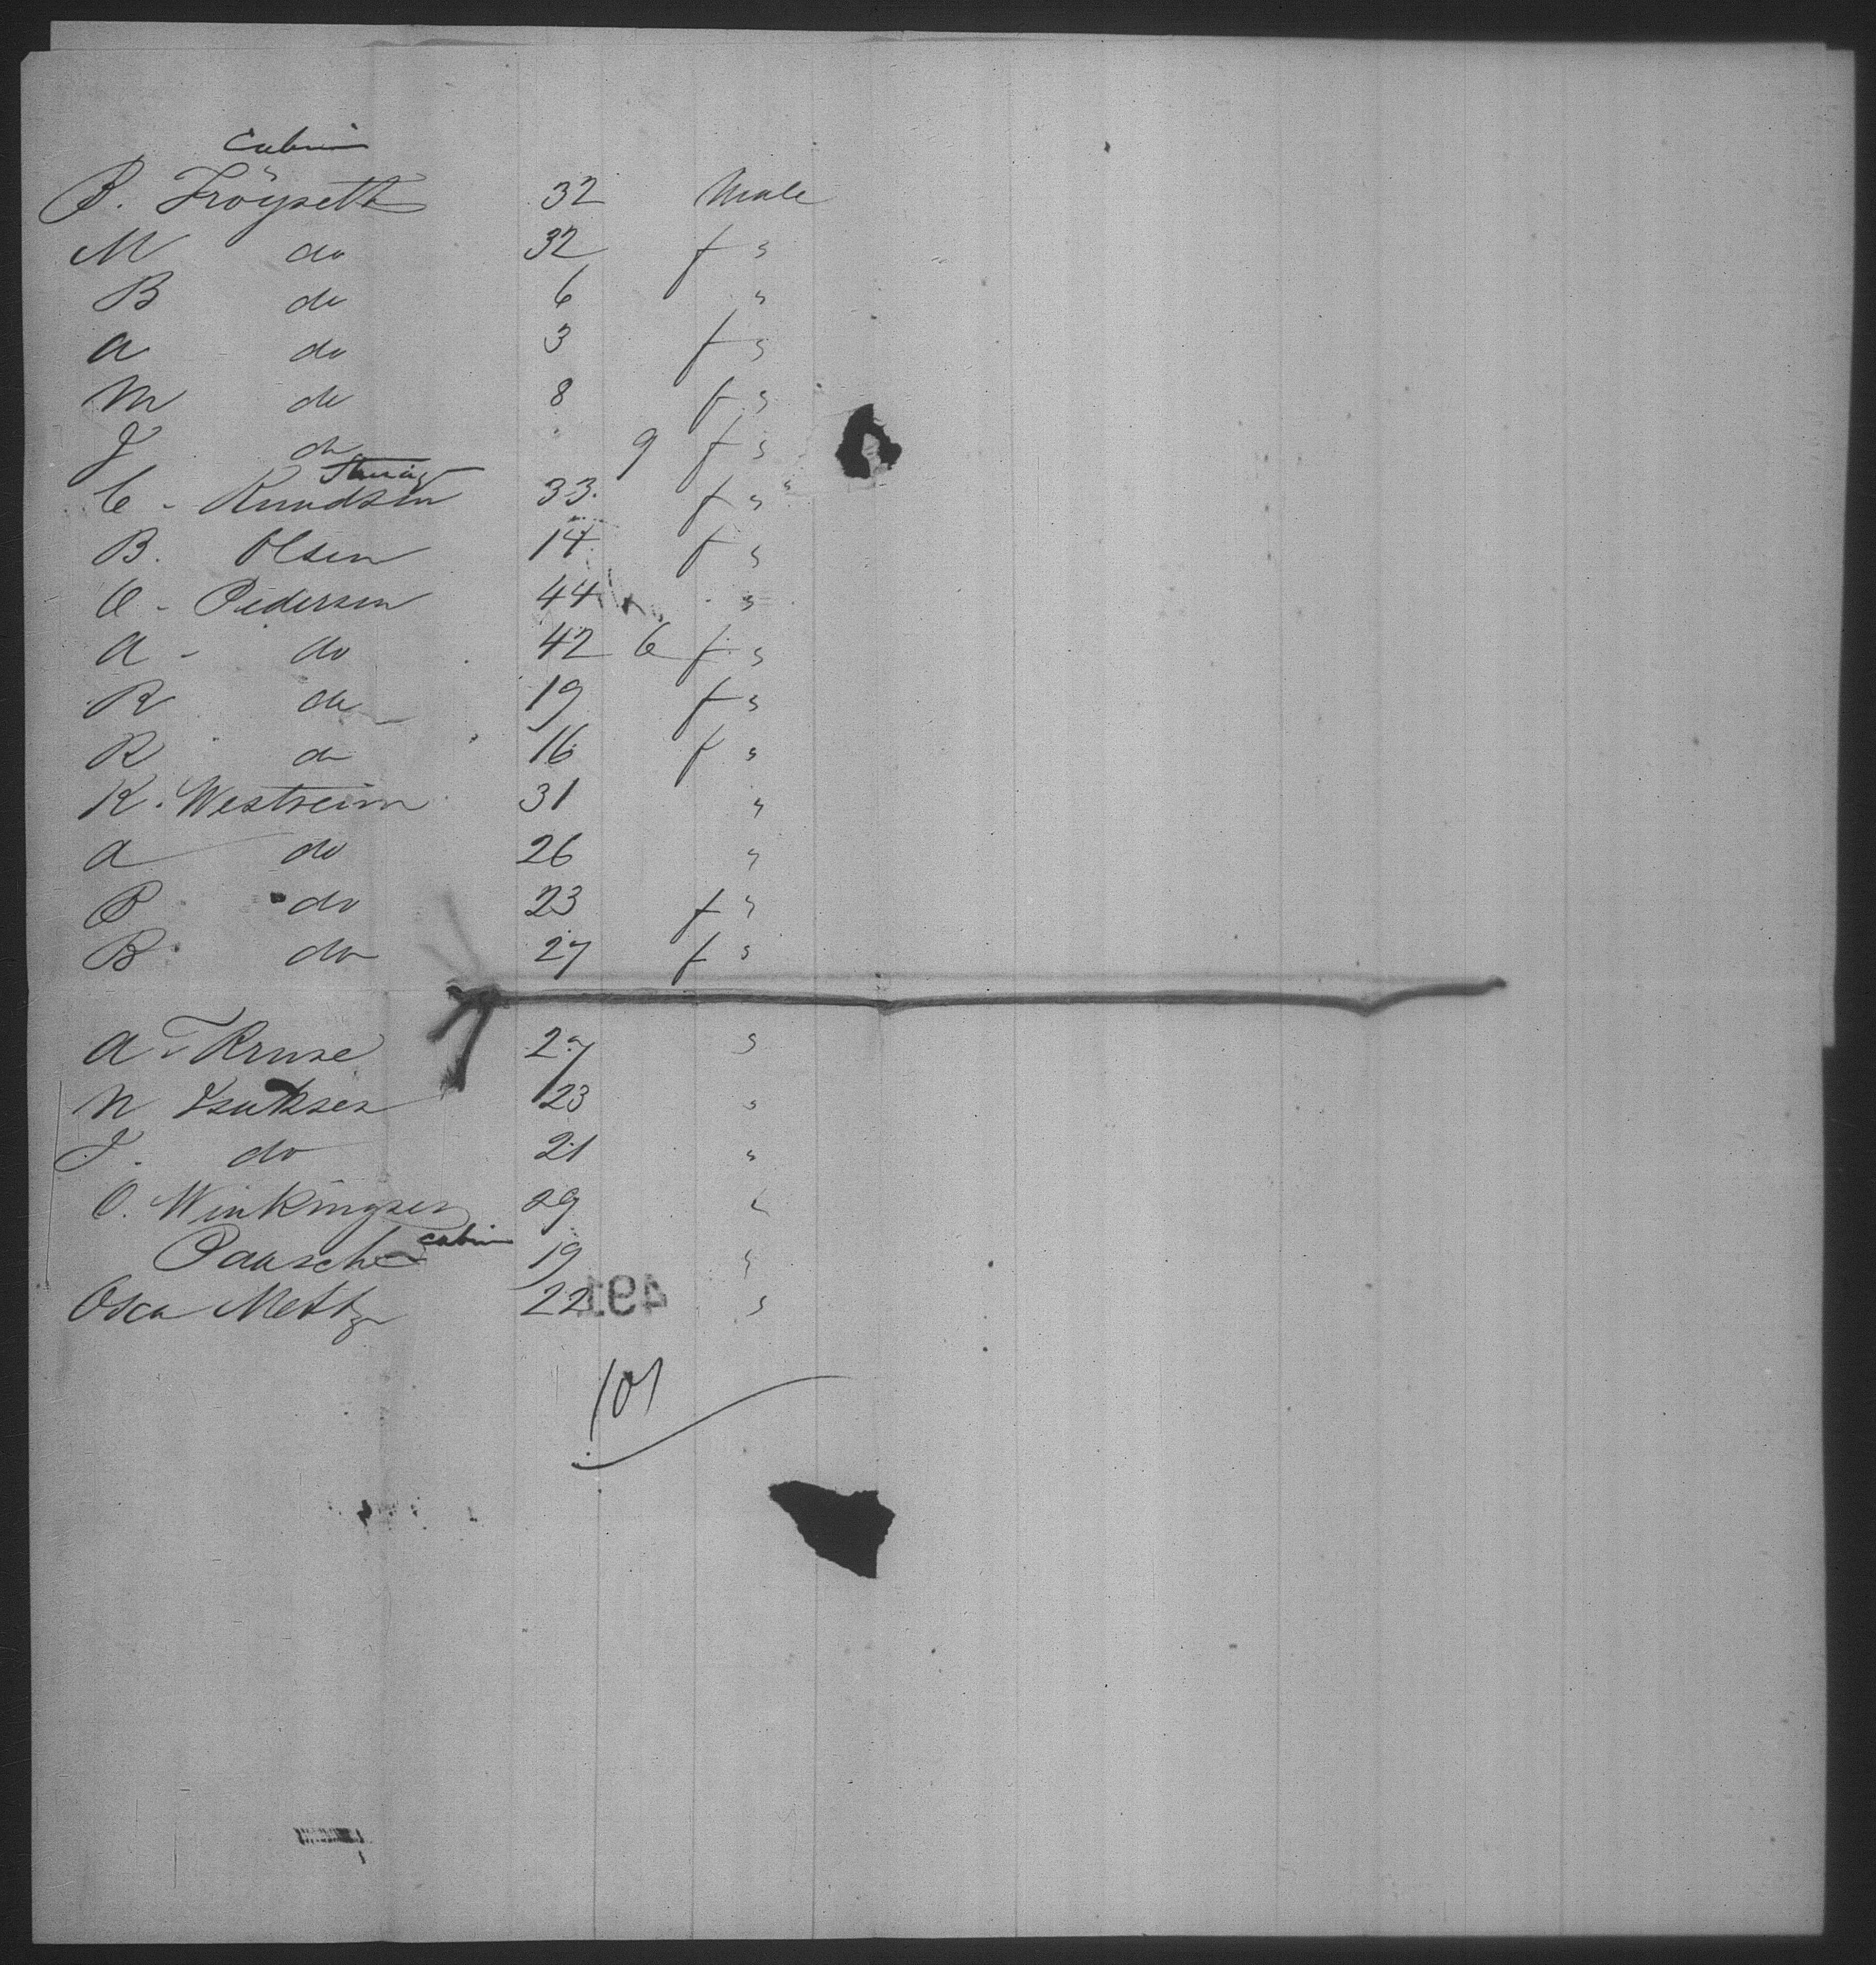 Cabin
B. Fröyseth 32 Male
M do 32 f "
B do 6 "
A do 3 f "
M do 8 f "
J do 9 f "
Steerage
C - Knudsen 33 f "
B. Olsen 14 f "
O - Pedersen 44 "
A - do 42 6 f "
R do 19 f "
R do 16 f "
K. Westreim 31 "
A do 26 "
P do 23 f "
B do 27 f "
A Kruse 27 "
N Isaksen 23 "
J. do 21 "
O. Winkingsen 29 "
Paasche cabin 19 "
Osca Mettz 22 "
491
101